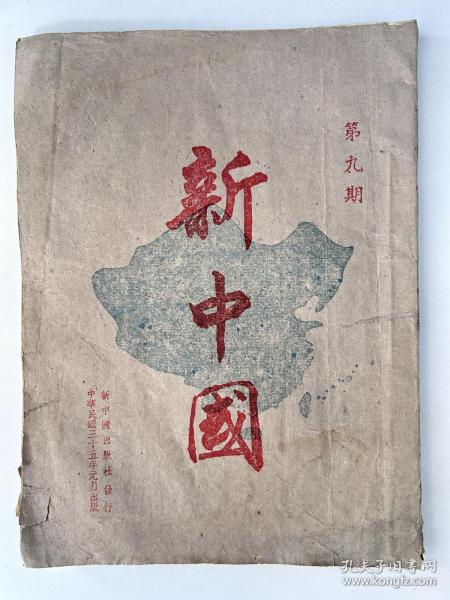 第九期
新中國
新中國出版社發行
中華民國三十五年元月出版
孔夫子旧书网
www.kongfz.com